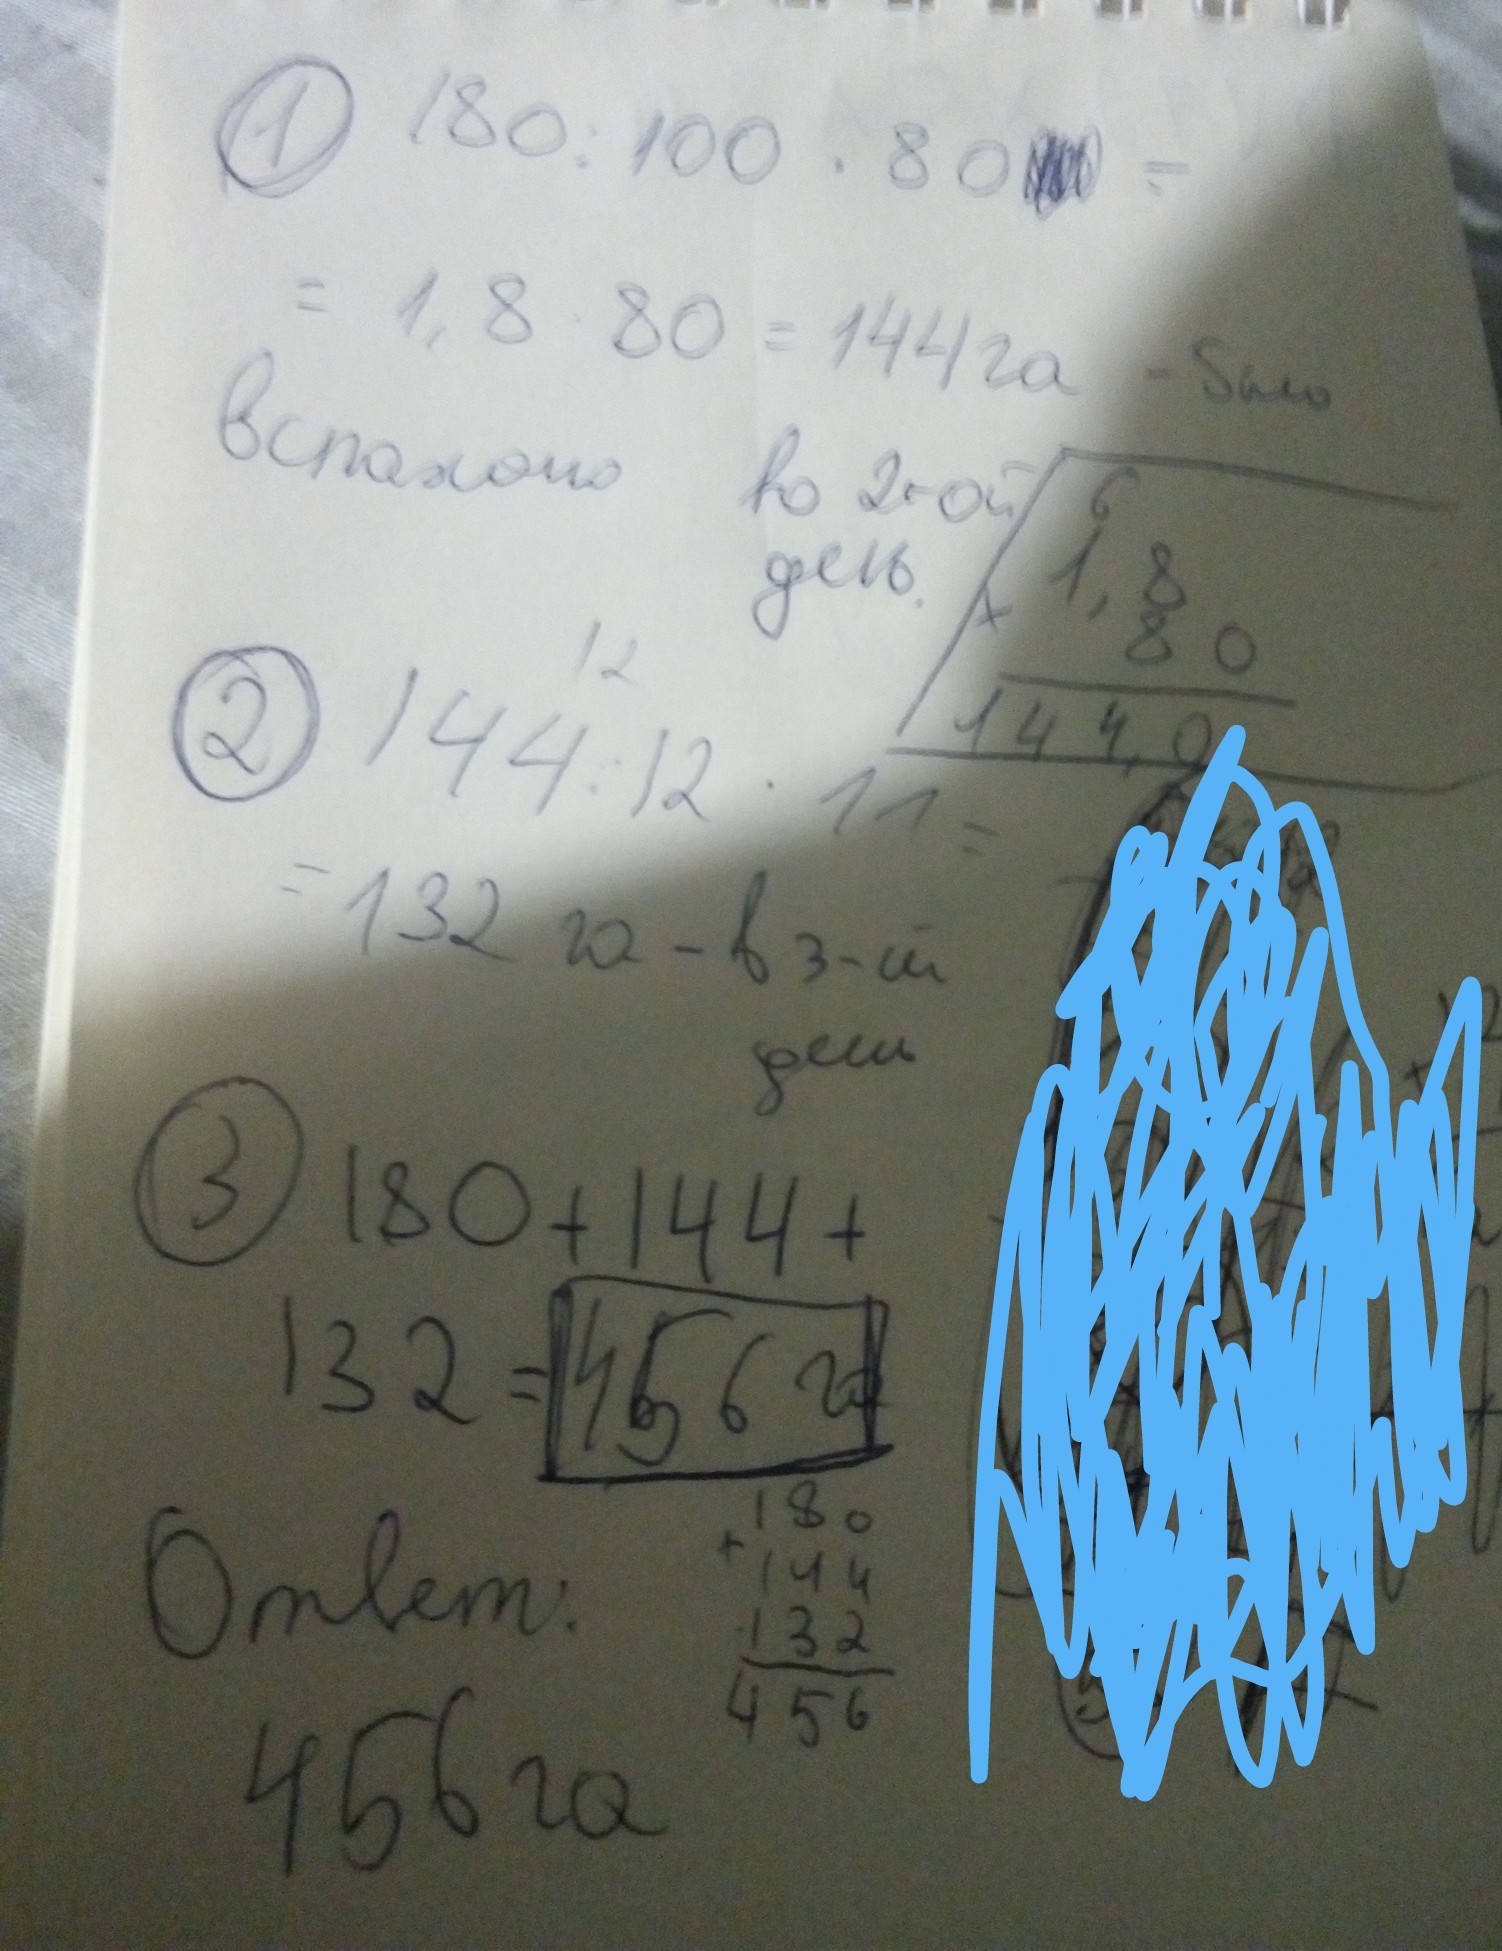 1 180 : 100 · 80 =
= 1,8 · 80 = 144 га - было
вспахано во 2-ой
день.
6
1,8
× 80
144,0
12
2 144 : 12 · 11 =
= 132 га - в 3-ий
день
3 180 + 144 +
132 = 456 га
180
+ 144
132
456
Ответ:
456 га